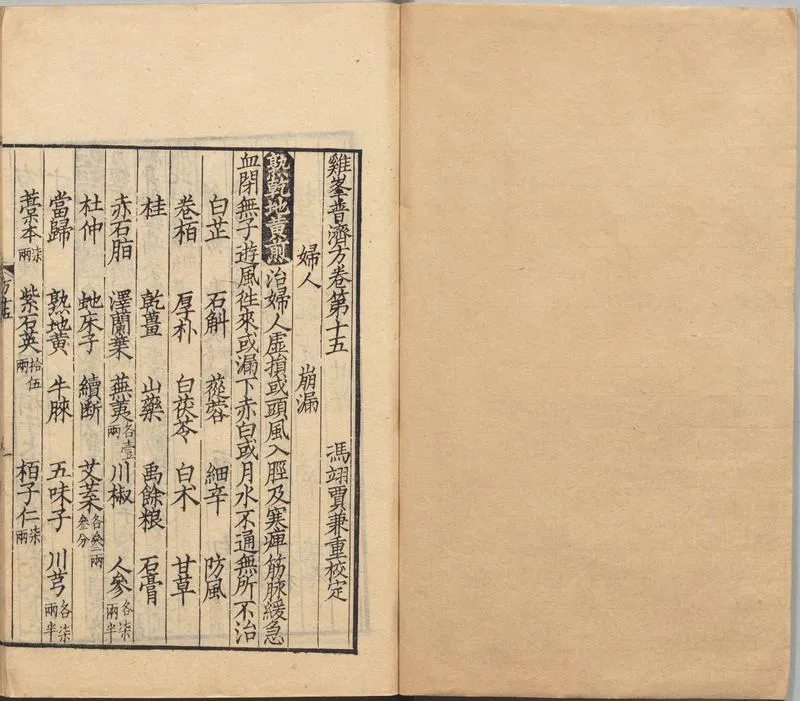 雞峯普濟方卷第十五 馮翊賈兼重校定
婦人 崩漏
熟乾地黃煎 治婦人虛損或頭風入脛及寒痺筋脉緩急
血閉無子遊風徃來或漏下赤白或月水不通無所不治
白芷 石斛 蓯蓉 細辛 防風
卷栢 厚朴 白茯苓 白术 甘草
桂 乾薑 山藥 禹餘粮 石膏
赤石脂 澤蘭葉 蕪荑各壹兩 川椒 人參各柒兩半
杜仲 虵床子 續斷 艾葉各叁兩叁分
當歸 熟地黃 牛膝 五味子 川芎各柒兩半
藁本柒兩 紫石英拾伍兩 栢子仁柒兩